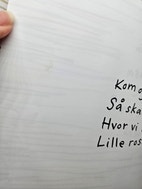 Kom
Så ska
Hvor vi
Lille ros